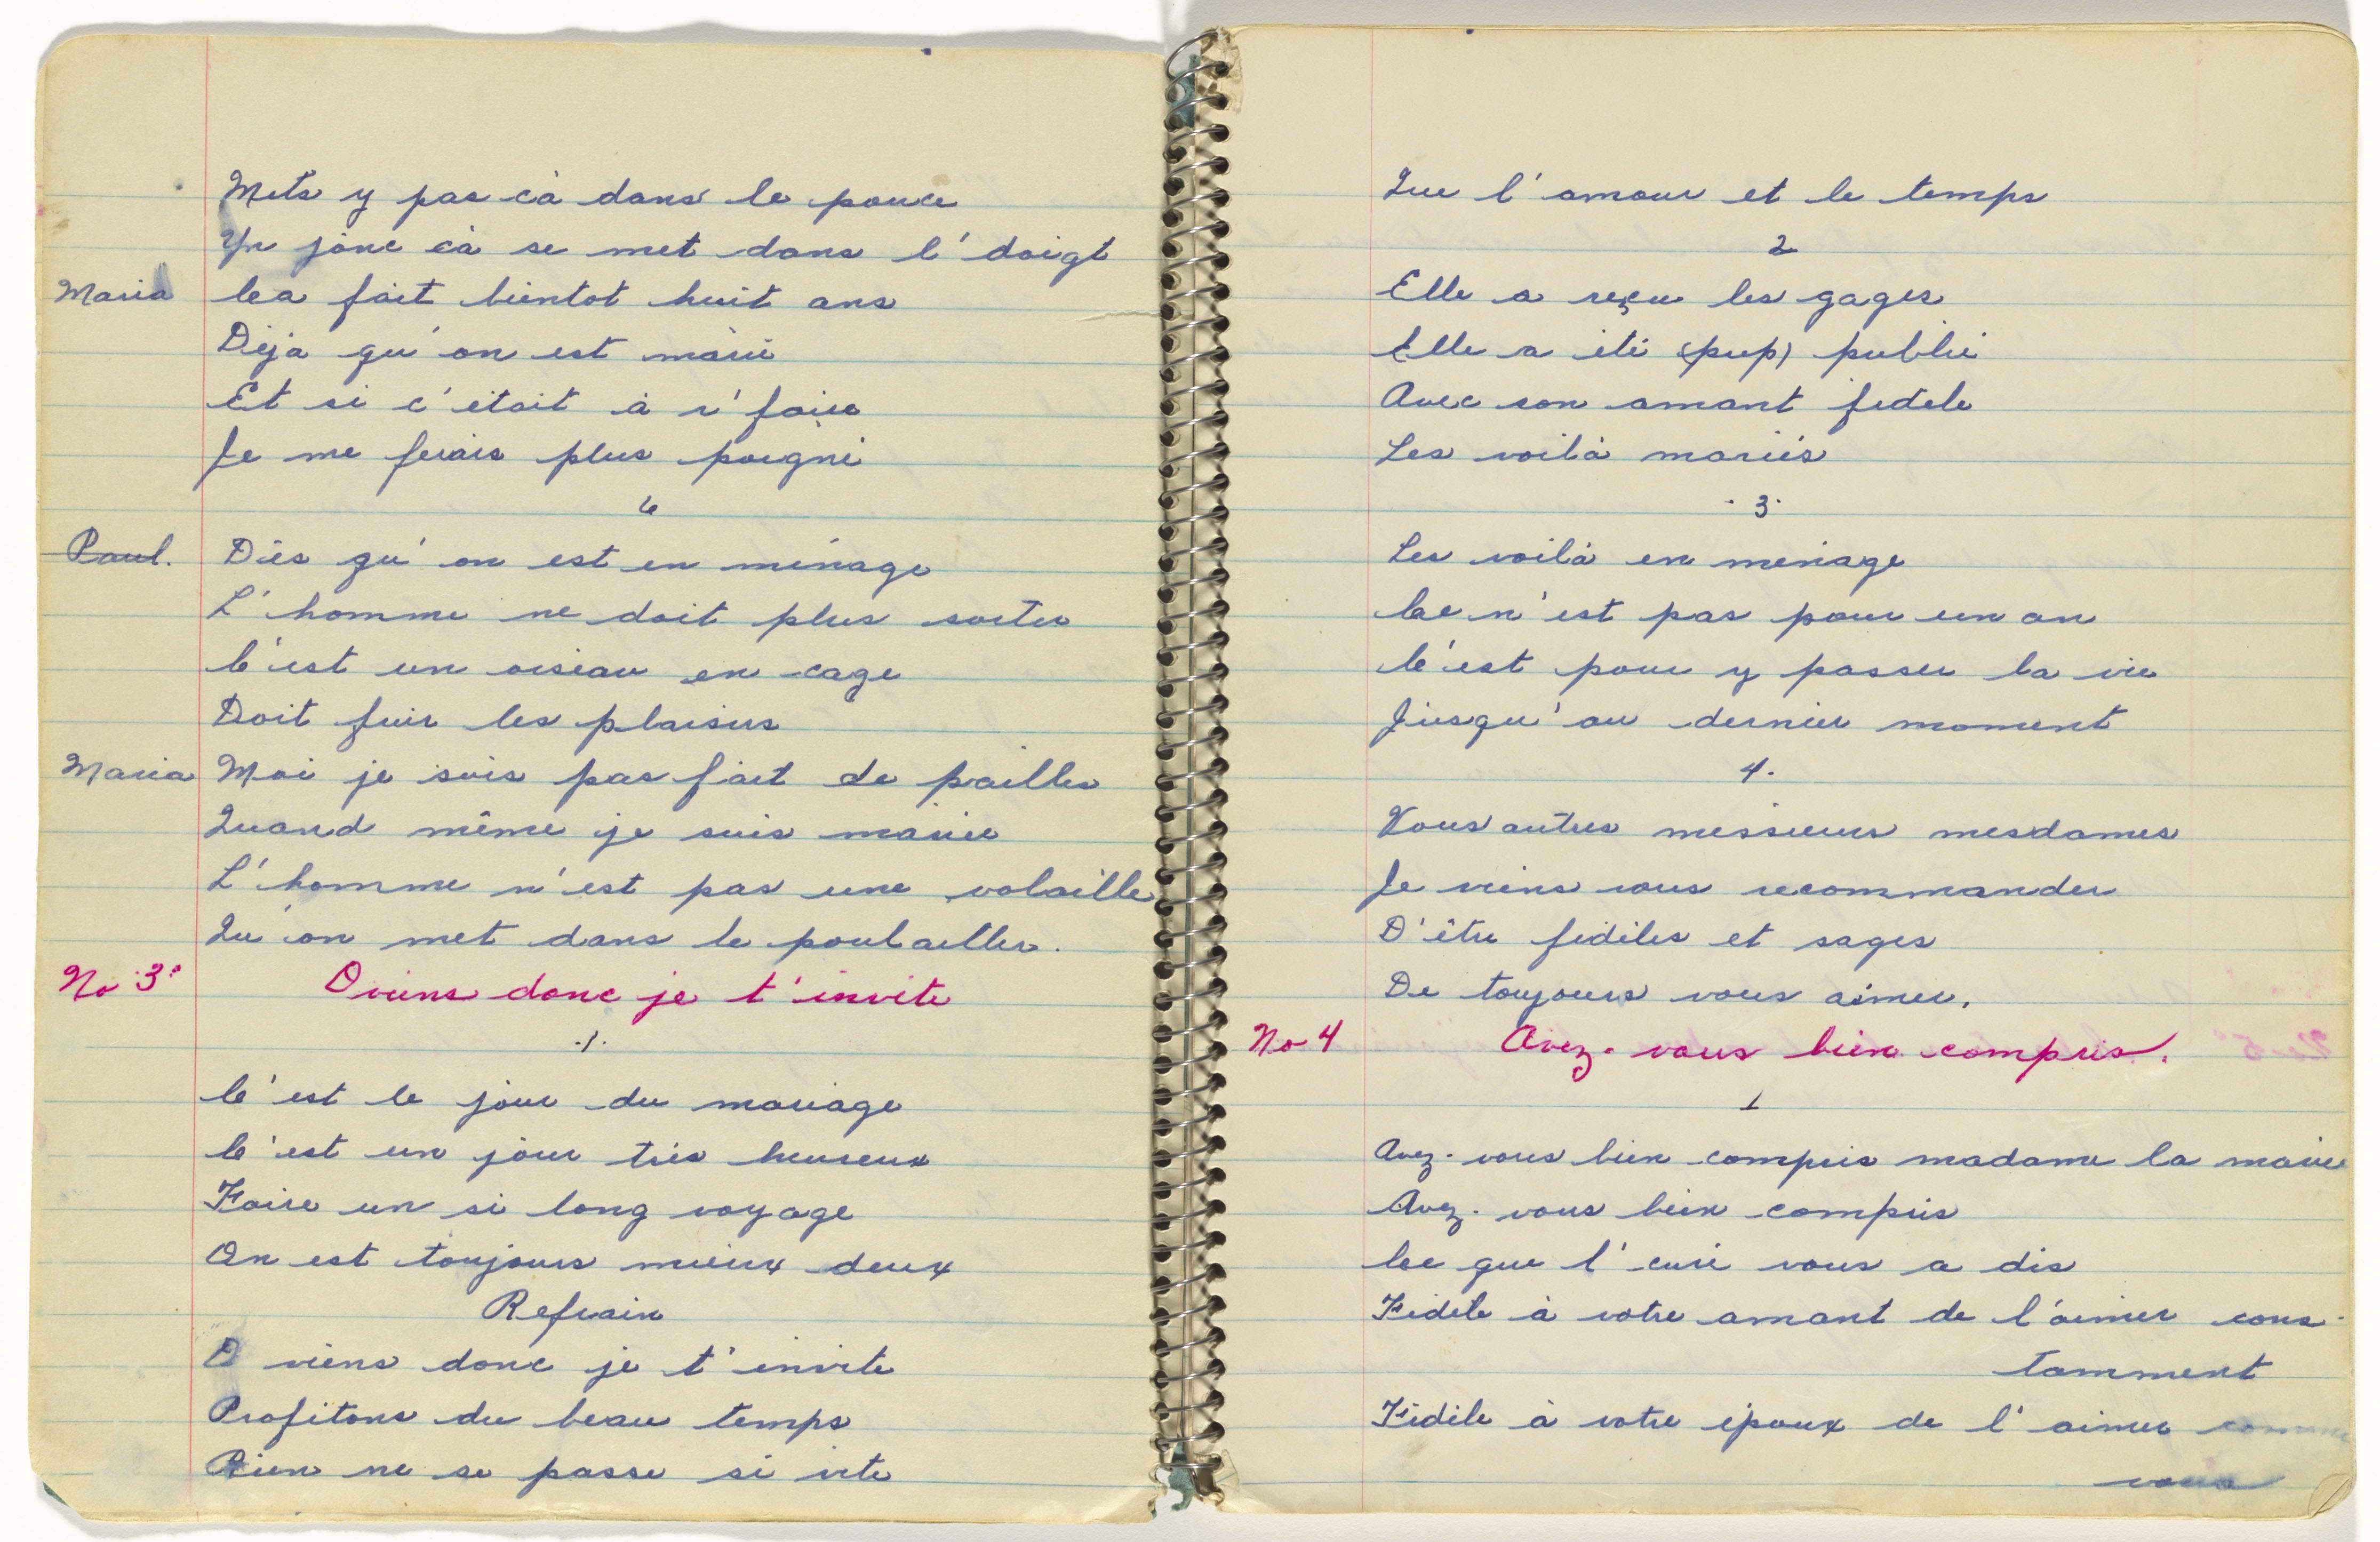 Mets y pas cà dans le pouce
Yn jonc cà se met dans l'doigt
Maria Ca fait bientot huit ans
Déja qu'on est marié
Et si c'était à r'faire
Je me ferais plus poigné
6
Paul. Dès qu'on est en ménage
L'homme ne doit plus sortir
C'est un oiseau en cage
Doit fuir les plaisirs
Maria Moi je suis pas fait de pailles
Quand même je suis mariée
L'homme n'est pas une volaille
Qu'on met dans le poulailler.
No 3° O viens donc je t'invite
.1.
C'est le jour du mariage
C'est un jour très heureux
Faire un si long voyage
On est toujours mieux deux
Refrain
O viens donc je t'invite
Profitons du beau temps
Rien ne se passe si vite
Que l'amour et le temps
2
Elle a reçu les gages
Elle a été (pup) publié
Avec son amant fidele
Les voilà mariés
.3.
Les voilà en menage
Ce n'est pas pour un an
C'est pour y passer la vie
Jusqu'au dernier moment
4.
Vous autres messieurs mesdames
Je viens vous recommander
D'être fidèles et sages
De toujours vous aimer.
No 4 Avez-vous bien compris.
1
Avez-vous bien compris madame la mariée
Avez-vous bien compris
Ce que l'curé vous a dis
Fidèle à votre amant de l'aimer cons-
tamment
Fidèle à votre époux de l'aimer comme
vous